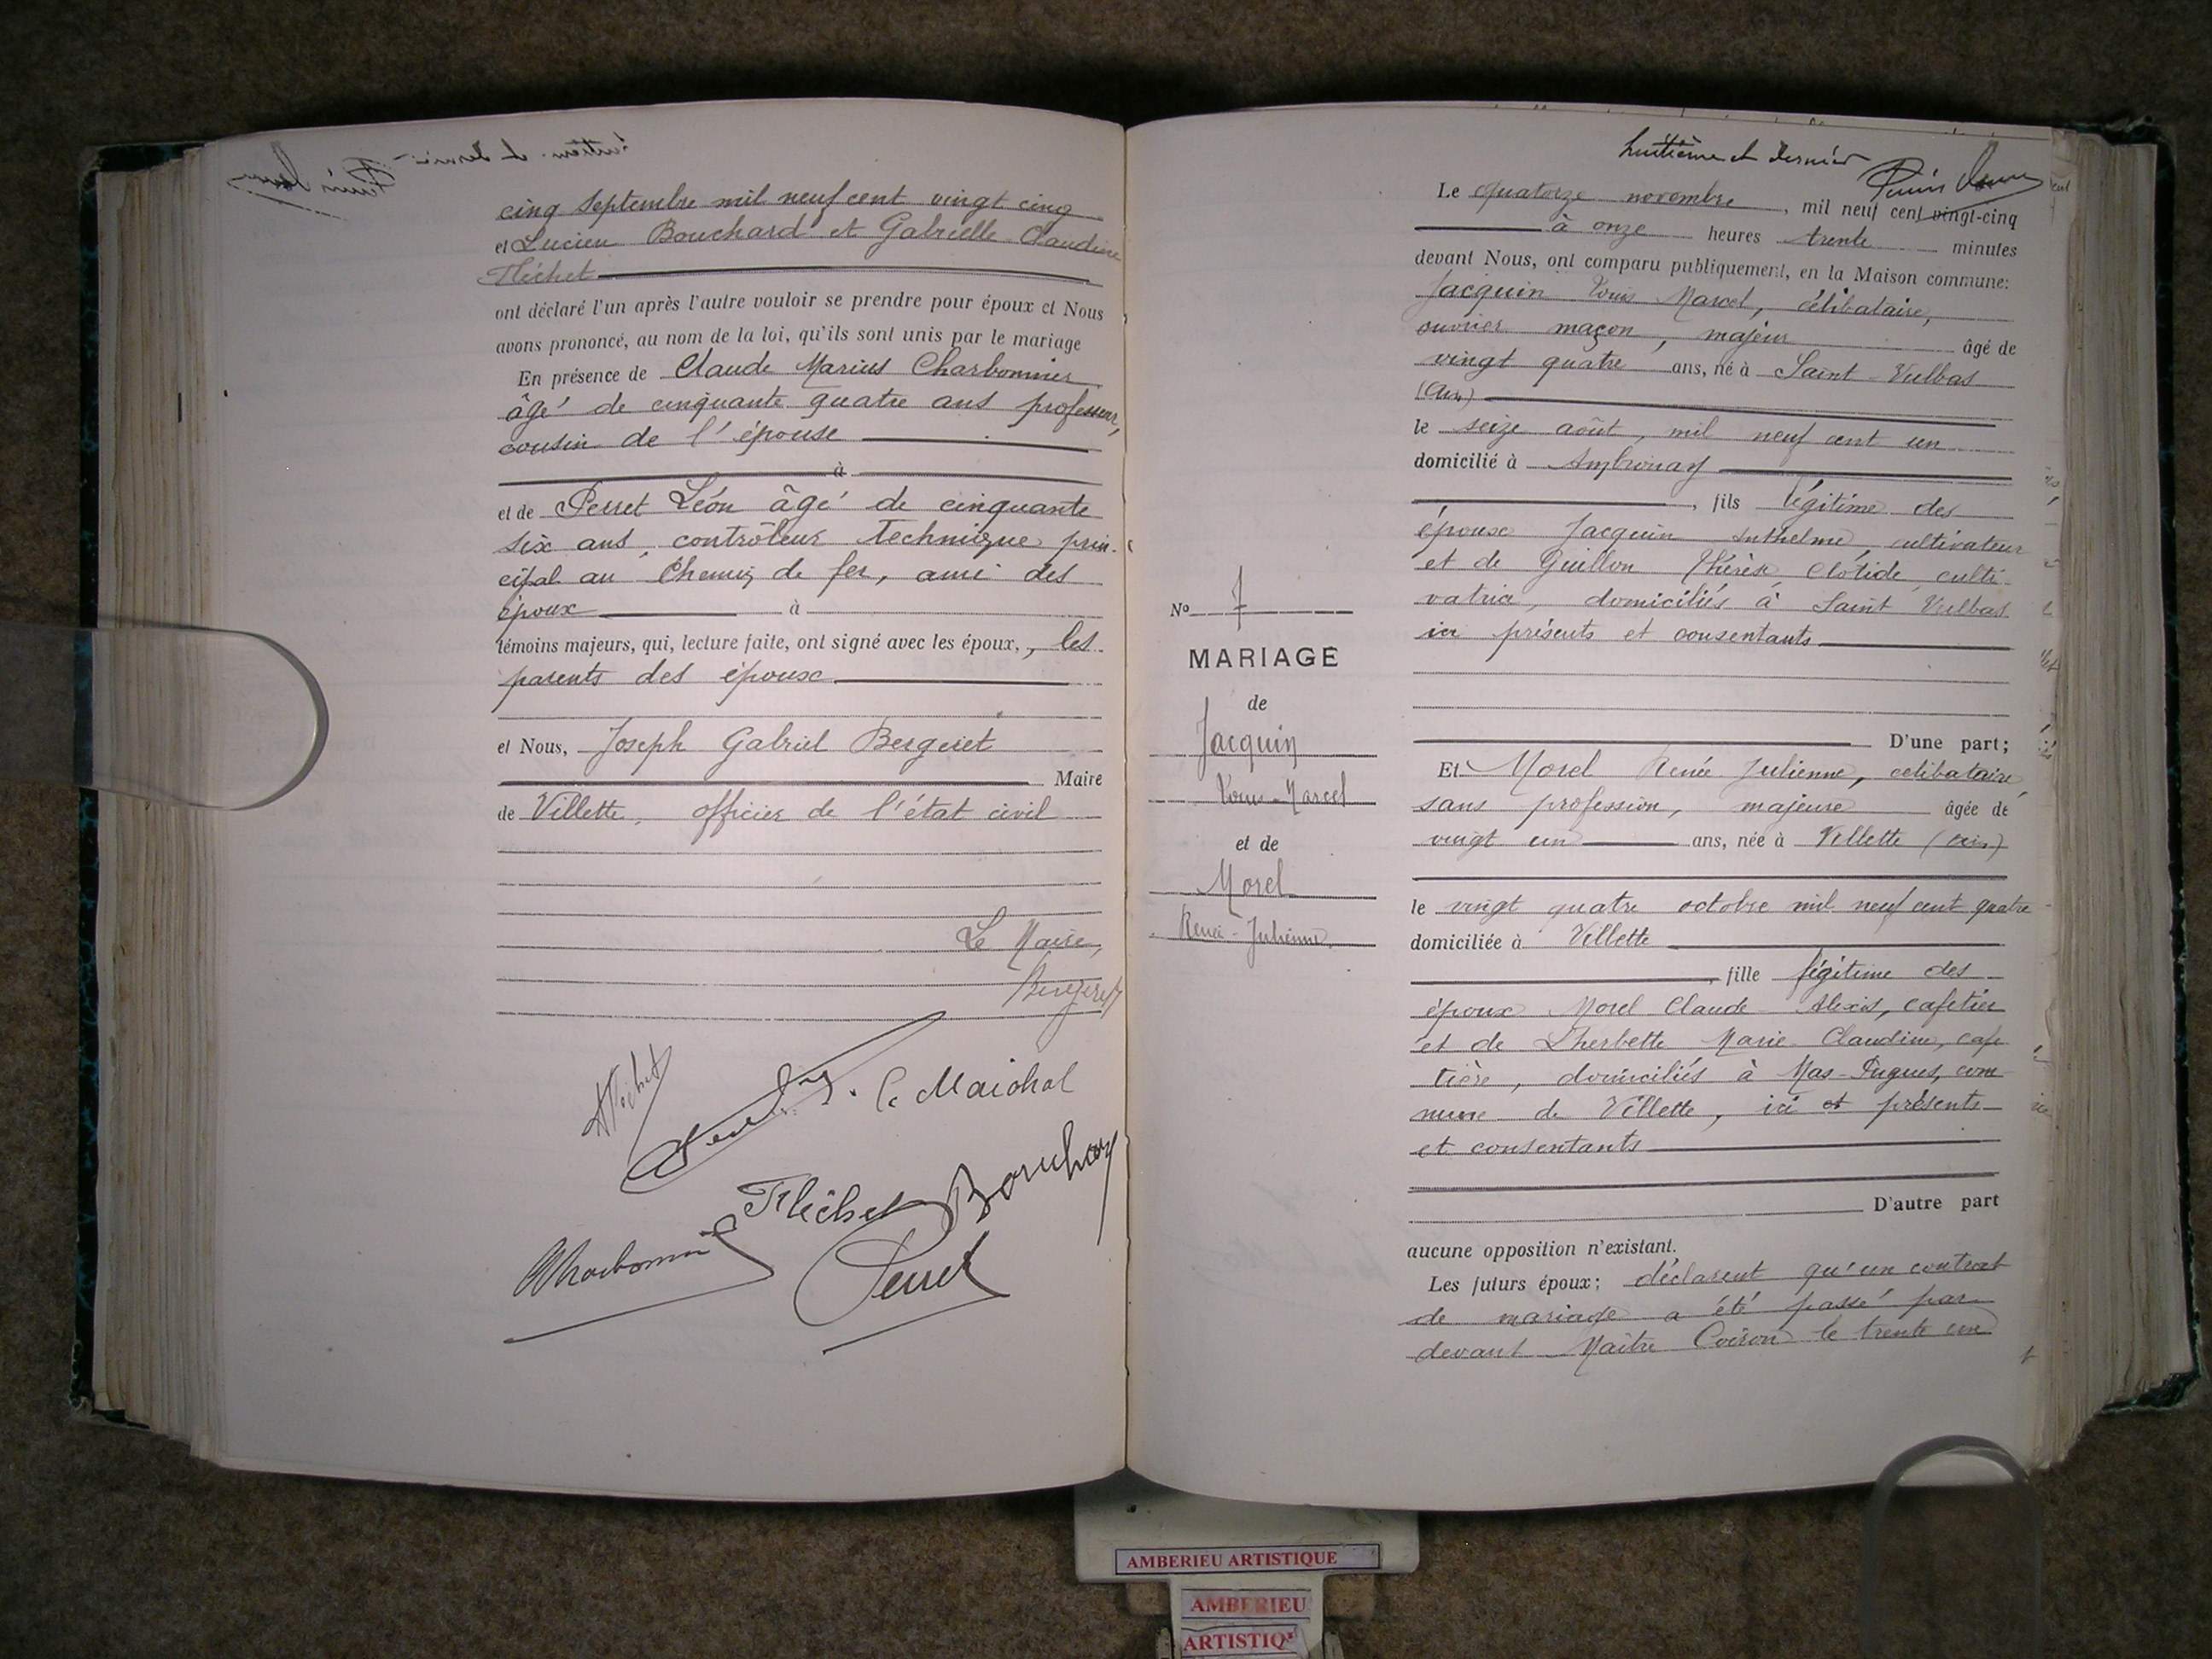 cinq septembre mil neuf cent vingt cinq
et Lucien Bouchard et Gabrielle Claudine
Fléchet
ont déclaré l'un après l'autre vouloir se prendre pour époux et Nous
avons prononcé, au nom de la loi, qu'ils sont unis par le mariage
En présence de Claude Marius Charbonnier
âgé de cinquante quatre ans professeur,
cousin de l'épouse
à
et de Perret Léon âgé de cinquante
six ans, contrôleur technique prin-
cipal au Chemin de fer, ami des
époux à
témoins majeurs, qui, lecture faite, ont signé avec les époux, , les
parents des époux
et Nous, Joseph Gabriel Bergeret
Maire
de Villette, officier de l'état civil
Le Maire,
Bergeret
Fléchet
C. Maréchal
Fléchet Bouchard
Charbonnier
Perret
No 7
MARIAGE
de
Jacquin
Louis-Marcel
et de
Morel
Renée-Julienne
huitième et dernier
Le quatorze novembre, mil neuf cent vingt-cinq
à onze heures trente minutes
devant Nous, ont comparu publiquement, en la Maison commune:
Jacquin Louis Marcel, célibataire,
ouvrier maçon, majeur âgé de
vingt quatre ans, né à Saint-Vulbas
(Ain)
le seize août, mil neuf cent un
domicilié à Ambronay
, fils légitime des
époux Jacquin Anthelme, cultivateur
et de Guillon Thérèse Clotide, culti-
vatrice, domiciliés à Saint Vulbas
ici présents et consentants
D'une part;
Et Morel Renée Julienne, célibataire,
sans profession, majeure âgée de
vingt un ans, née à Villette (Ain)
le vingt quatre octobre mil neuf cent quatre
domiciliée à Villette
, fille légitime des
époux Morel Claude Alexis, cafetier
et de Lherbette Marie Claudine, cafe
tière, domiciliés à Mas-Dugues, com
mune de Villette, ici et présents
et consentants
D'autre part
aucune opposition n'existant.
Les futurs époux; déclarent qu'un contrat
de mariage a été passé par
devant Maître Coiron le trente un
AMBERIEU ARTISTIQUE
AMBERIEU
ARTISTIQ